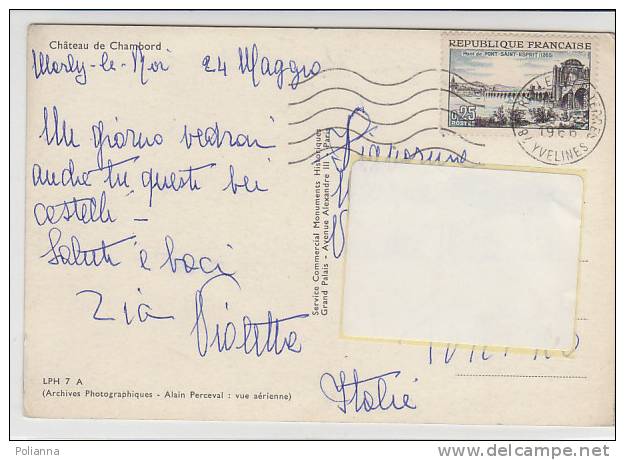 Château de Chambord
Marly-le-Roi 24 Maggio
Un giorno vedrai
anche tu questi bei
castelli -
Saluti e baci
Zia Violetta
LPH 7 A
(Archives Photographiques - Alain Perceval : vue aérienne)
Service Commercial Monuments Historiques
Grand Palais - Avenue Alexandre III - Paris
REPUBLIQUE FRANCAISE
Pont de PONT-SAINT-ESPRIT (1265)
0,25
POSTES
1966
78 YVELINES
Italie
Polianna
www.delcampe.net